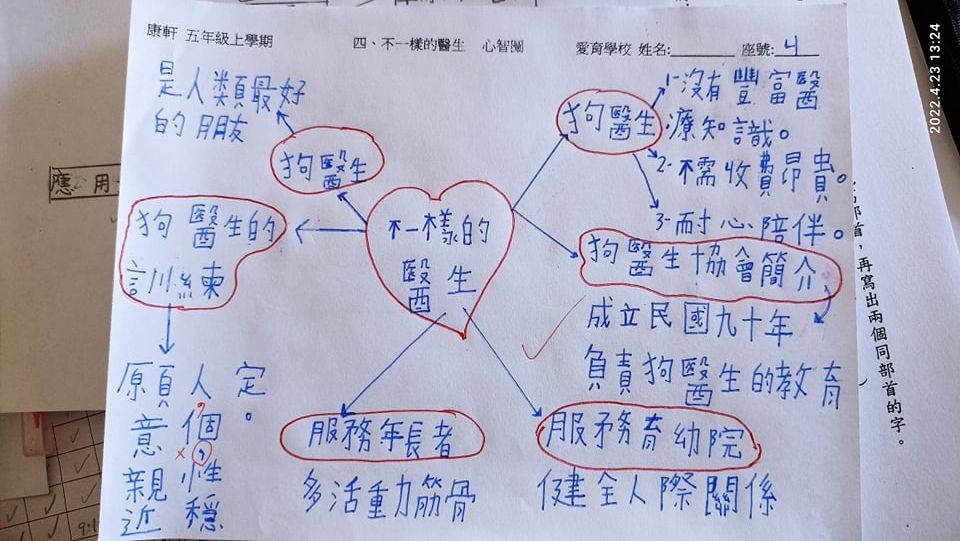 康軒 五年級上學期 四、不一樣的醫生 心智圖 愛育學校 姓名:________ 座號:4
不一樣的
醫生
狗醫生
是人類最好
的朋友
狗醫生
1.沒有豐富醫
療知識。
2.不需收費昂貴。
3.耐心陪伴。
狗醫生的
訓練
原頁人定。
意個
親性
近穩
狗醫生協會簡介
成立民國九十年
負責狗醫生的教育
服務年長者
多活重力筋骨
服務育幼院
健全人際關係
應用
部首,再寫出兩個同部首的字。
2022.4.23 13:24